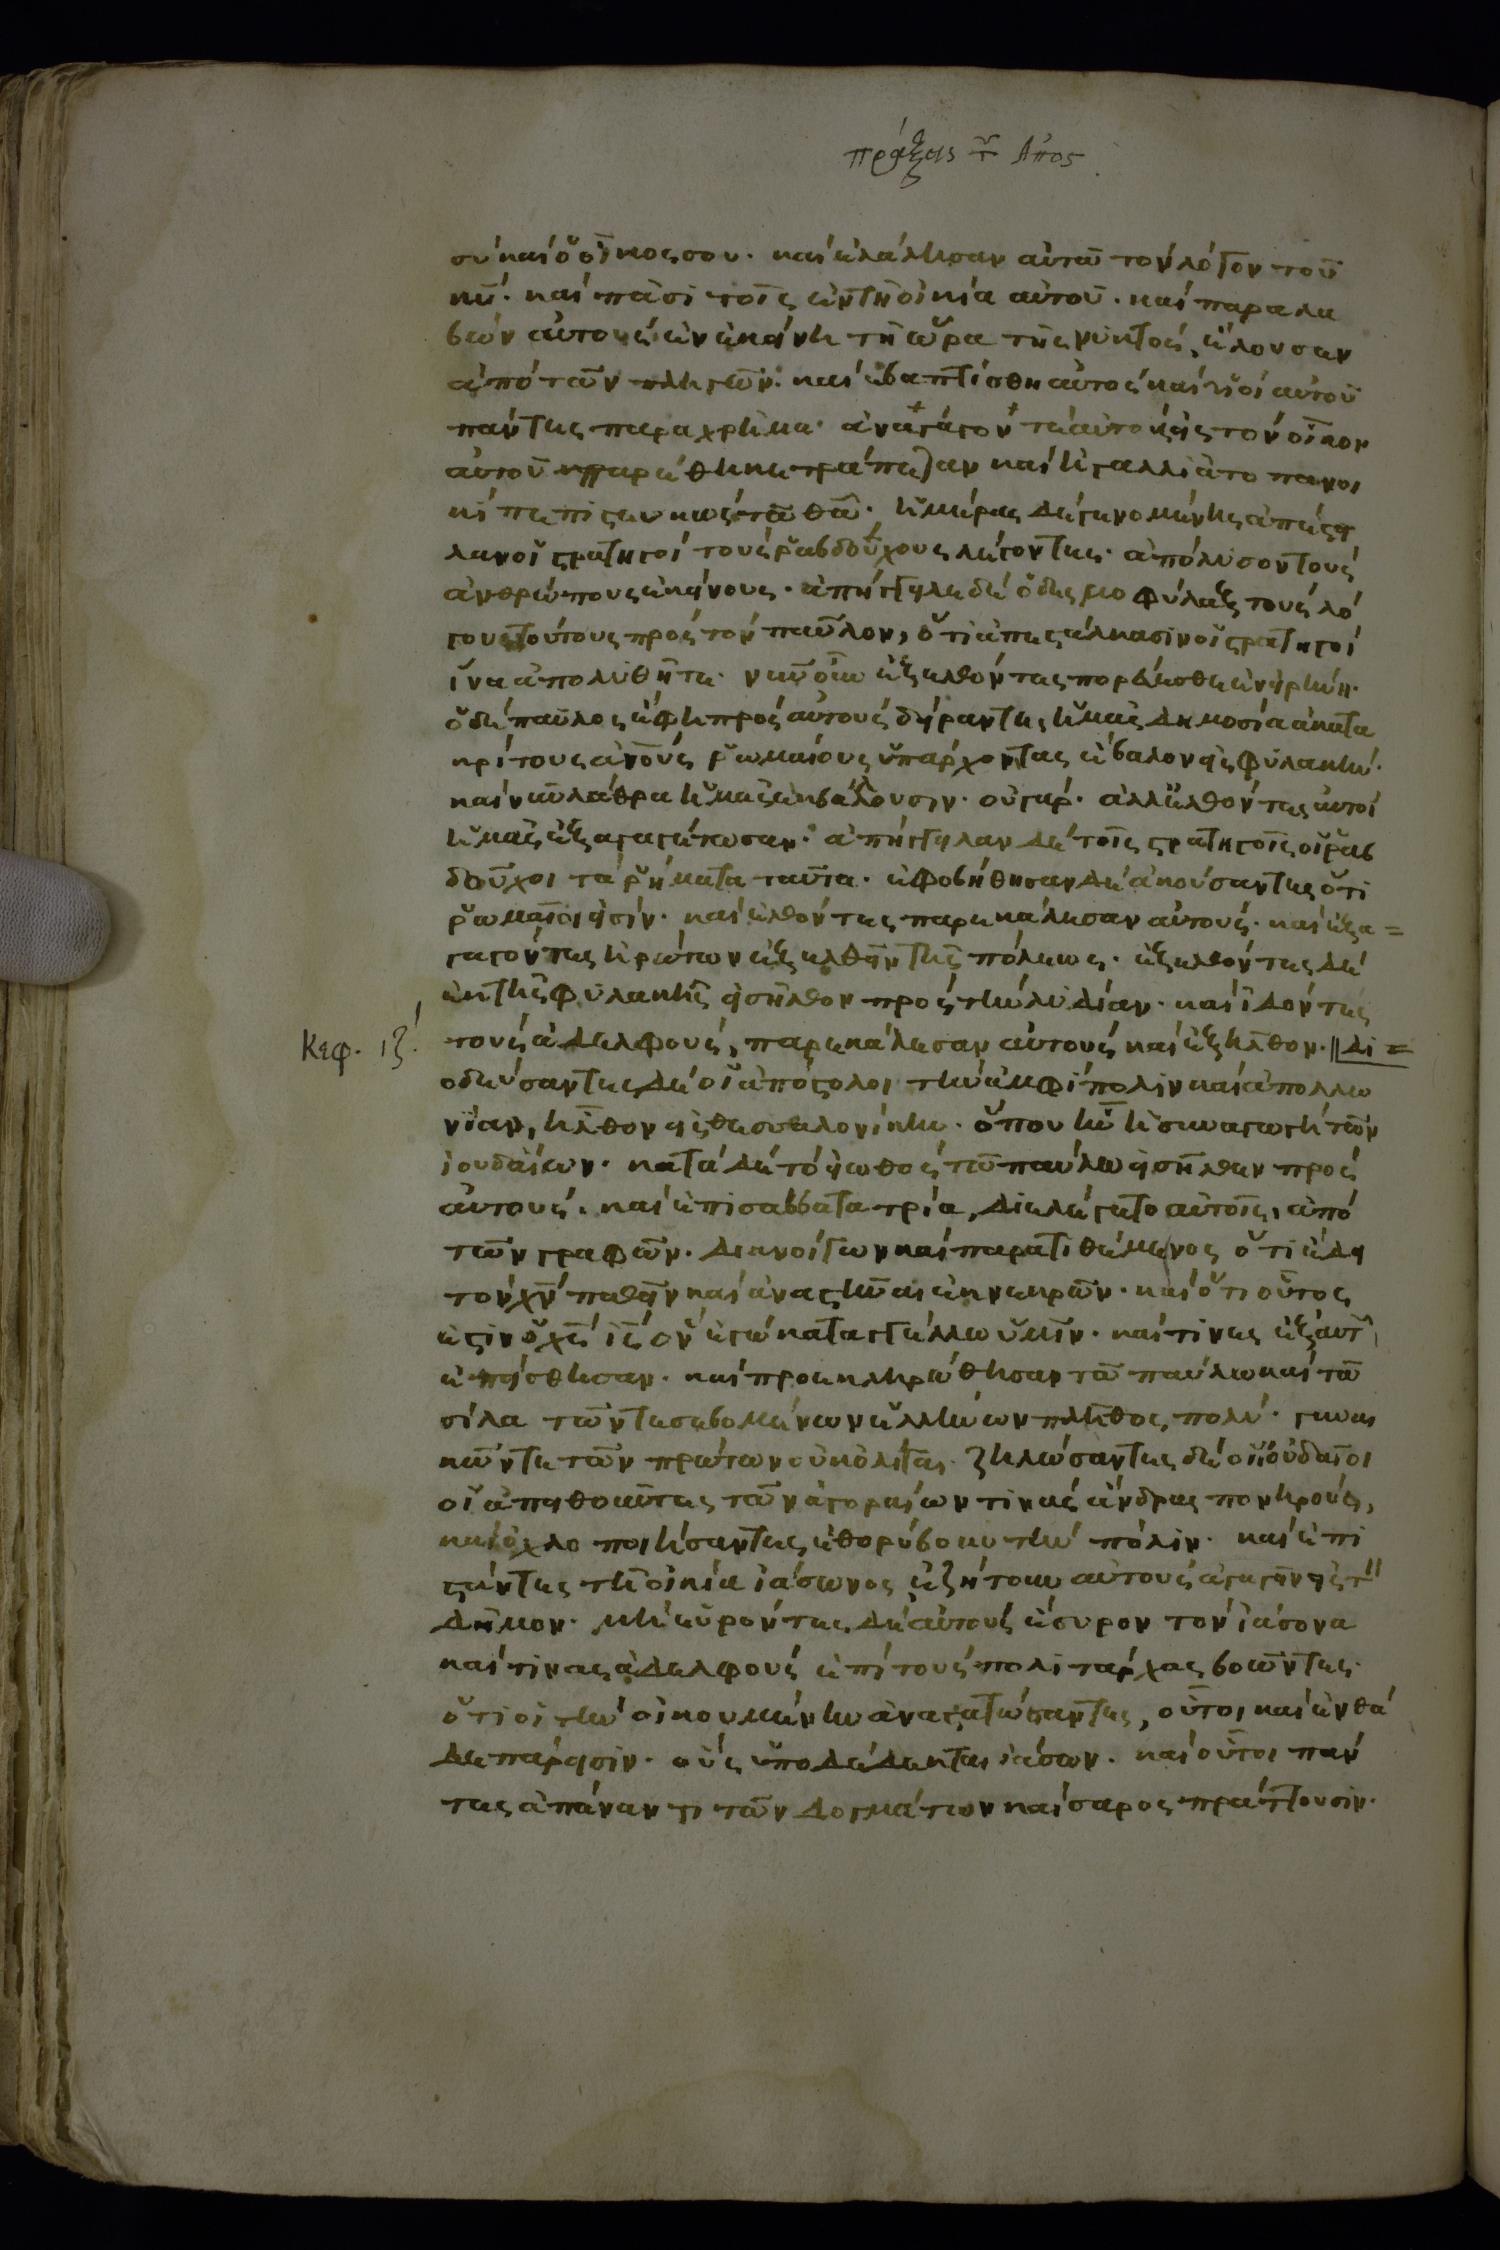 πράξεις τ῀ Ἀπος
σὺ καὶ ὁ οἶκος σου. καὶ ἐλάλησαν αὐτῶ τὸν λόγον τοῦ
κυ̅. καὶ πᾶσι τοῖς ἐν τῆ οἰκία αὐτοῦ. καὶ παραλα
βὼν αὐτοὺς ἐν ἐκείνη τῆ ὥρα τῆς νυκτὸς, ἔλουσεν
ἀπὸ τῶν πληγῶν. καὶ ἐβαπτίσθη αὐτὸς καὶ οἱ αὐτοῦ
πάντες παραχρῆμα. ἀναγάγον τὲ αὐτοὺς εἰς τὸν οἶκον
αὐτοῦ παρέθηκε τράπεζαν καὶ ἠγαλλιᾶτο πανοι
κὶ πεπιστευκὼς τῶ θω̅. ἡμέρας δὲ γενομένης ἀπέστει
λαν οἱ στρατηγοὶ τοὺς ῥαβδούχους λέγοντες. ἀπόλυσον τοὺς
ἀνθρώπους ἐκείνους. ἀπήγγειλε δὲ ὁ δεσμοφύλαξ τοὺς λό
γους τούτους πρὸς τὸν παῦλον, ὅτι ἀπεστάλκασιν οἱ στρατηγοὶ
ἵνα ἀπολυθῆτε. νῦν οὖν ἐξελθόντες πορεύεσθε ἐν εἰρήνη.
ὁ δὲ παῦλος ἔφη πρὸς αὐτοὺς δείραντες ἡμᾶς δημοσία ἀκατα
κρίτους ἀνους̅ ῥωμαίους ὑπάρχοντας ἔβαλον εἰς φυλακὴν.
καὶ νῦν λάθρα ἡμᾶς ἐκβάλλουσιν. οὐ γὰρ. ἀλλ' ἐλθόντες αὐτοὶ
ἡμᾶς ἐξαγαγέτωσαν. ἀπήγγειλαν δὲ τοῖς στρατηγοῖς οἱ ῥαβ
δοῦχοι τὰ ῥήματα ταῦτα. ἐφοβήθησαν δὲ ἀκούσαντες ὅτι
ῥωμαῖοι εἰσίν. καὶ ἐλθόντες παρεκάλεσαν αὐτούς. καὶ ἐξα=
γαγόντες ἠρώτων ἐξελθεῖν τῆς πόλεως. ἐξελθόντες δὲ
ἐκ τῆς φυλακῆς εἰσῆλθον πρὸς τὴν λυδίαν. καὶ ἰδόντες
Κεφ. ιζ΄. τοὺς ἀδελφοὺς, παρεκάλεσαν αὐτοὺς καὶ ἐξῆλθον. || Δι=
οδεύσαντες δὲ οἱ ἀπόστολοι τὴν ἀμφίπολιν καὶ ἀπολλω
νίαν, ἦλθον εἰς θεσσαλονίκην. ὅπου ἦν ἡ συναγωγὴ τῶν
ἰουδαίων. κατὰ δὲ τὸ εἰωθὸς τῶ παύλω εἰσῆλθεν πρὸς
αὐτοὺς. καὶ ἐπὶ σάββατα τρία, διελέγετο αὐτοῖς, ἀπὸ
τῶν γραφῶν. διανοίγων καὶ παρατιθέμενος ὅτι ἔδει
τὸν χν̅ παθεῖν καὶ ἀναστῆναι ἐκ νεκρῶν. καὶ ὅτι οὗτος
ἐστὶν ὁ χς̅ ις̅ ὃν ἐγὼ καταγγέλλω ὑμῖν. καὶ τινες ἐξ αυτ῀
ἐπείσθησαν. καὶ προσεκληρώθησαν τῶ παύλω καὶ τῶ
σίλα τῶν τε σεβομένων ἑλλήνων πλῆθος πολύ. γυναι
κῶν τε τῶν πρώτων οὐκ ὀλίγαι. ζηλώσαντες δὲ οἱ ἰουδαῖοι
οἱ ἀπειθοῦντες τῶν ἀγοραίων τινὰς ἄνδρας πονηροὺς,
καὶ ὀχλοποιήσαντες ἐθορύβουν τὴν πόλιν. καὶ ἐπι
στάντες τῆ οἰκία ἰάσωνος ἐζήτουν αὐτοὺς ἀγαγεῖν εἰς τ῀
δῆμον. μὴ εὑρόντες δὲ αὐτοὺς ἔσυρον τὸν ἰάσονα
καὶ τινας ἀδελφοὺς ἐπὶ τοὺς πολιτάρχας βοῶντες.
ὅτι οἱ τὴν οἰκουμένην ἀναστατώσαντες, οὗτοι καὶ ἐνθά
δε πάρεισιν. οὓς ὑποδέδεκται ἰάσων. καὶ οὗτοι πάν
τες ἀπέναντι τῶν δογμάτων καίσαρος πράττουσιν.